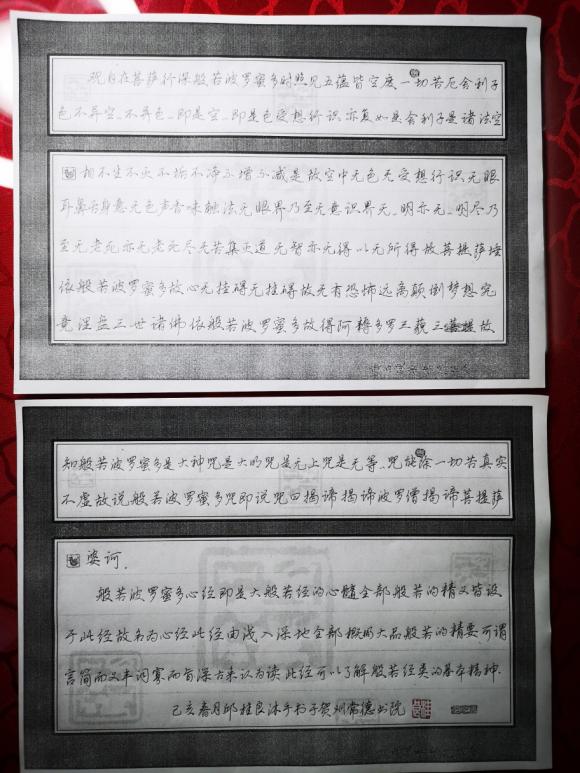 观自在菩萨行深般若波罗蜜多时照见五蕴皆空度一切苦厄舍利子
色不异空、不异色、即是空、即是色受想行识亦复如是舍利子是诸法空
相不生不灭不垢不净不增不减是故空中无色无受想行识无眼
耳鼻舌身意无色声香味触法无眼界乃至无意识界无、明亦无、明尽乃
至无老死亦无老死尽无苦集灭道无智亦无得以无所得故菩提萨埵
依般若波罗蜜多故心无挂碍无挂碍故无有恐怖远离颠倒梦想究
竟涅盘三世诸佛依般若波罗蜜多故得阿耨多罗三藐三菩提故
知般若波罗蜜多是大神咒是大明咒是无上咒是无等、咒能除一切苦真实
不虚故说般若波罗蜜多咒即说咒曰揭谛揭谛波罗僧揭谛菩提萨
婆诃.
般若波罗蜜多心经即是大般若经的心髓全部般若的精义皆设
于此经故名为心经此经由浅入深地全部概明大品般若的精要可谓
言简而义丰词寡而旨深古来认为读此经可以了解般若经类的基本精神.
己亥春月邱桂良沐手书于贺州常德书院